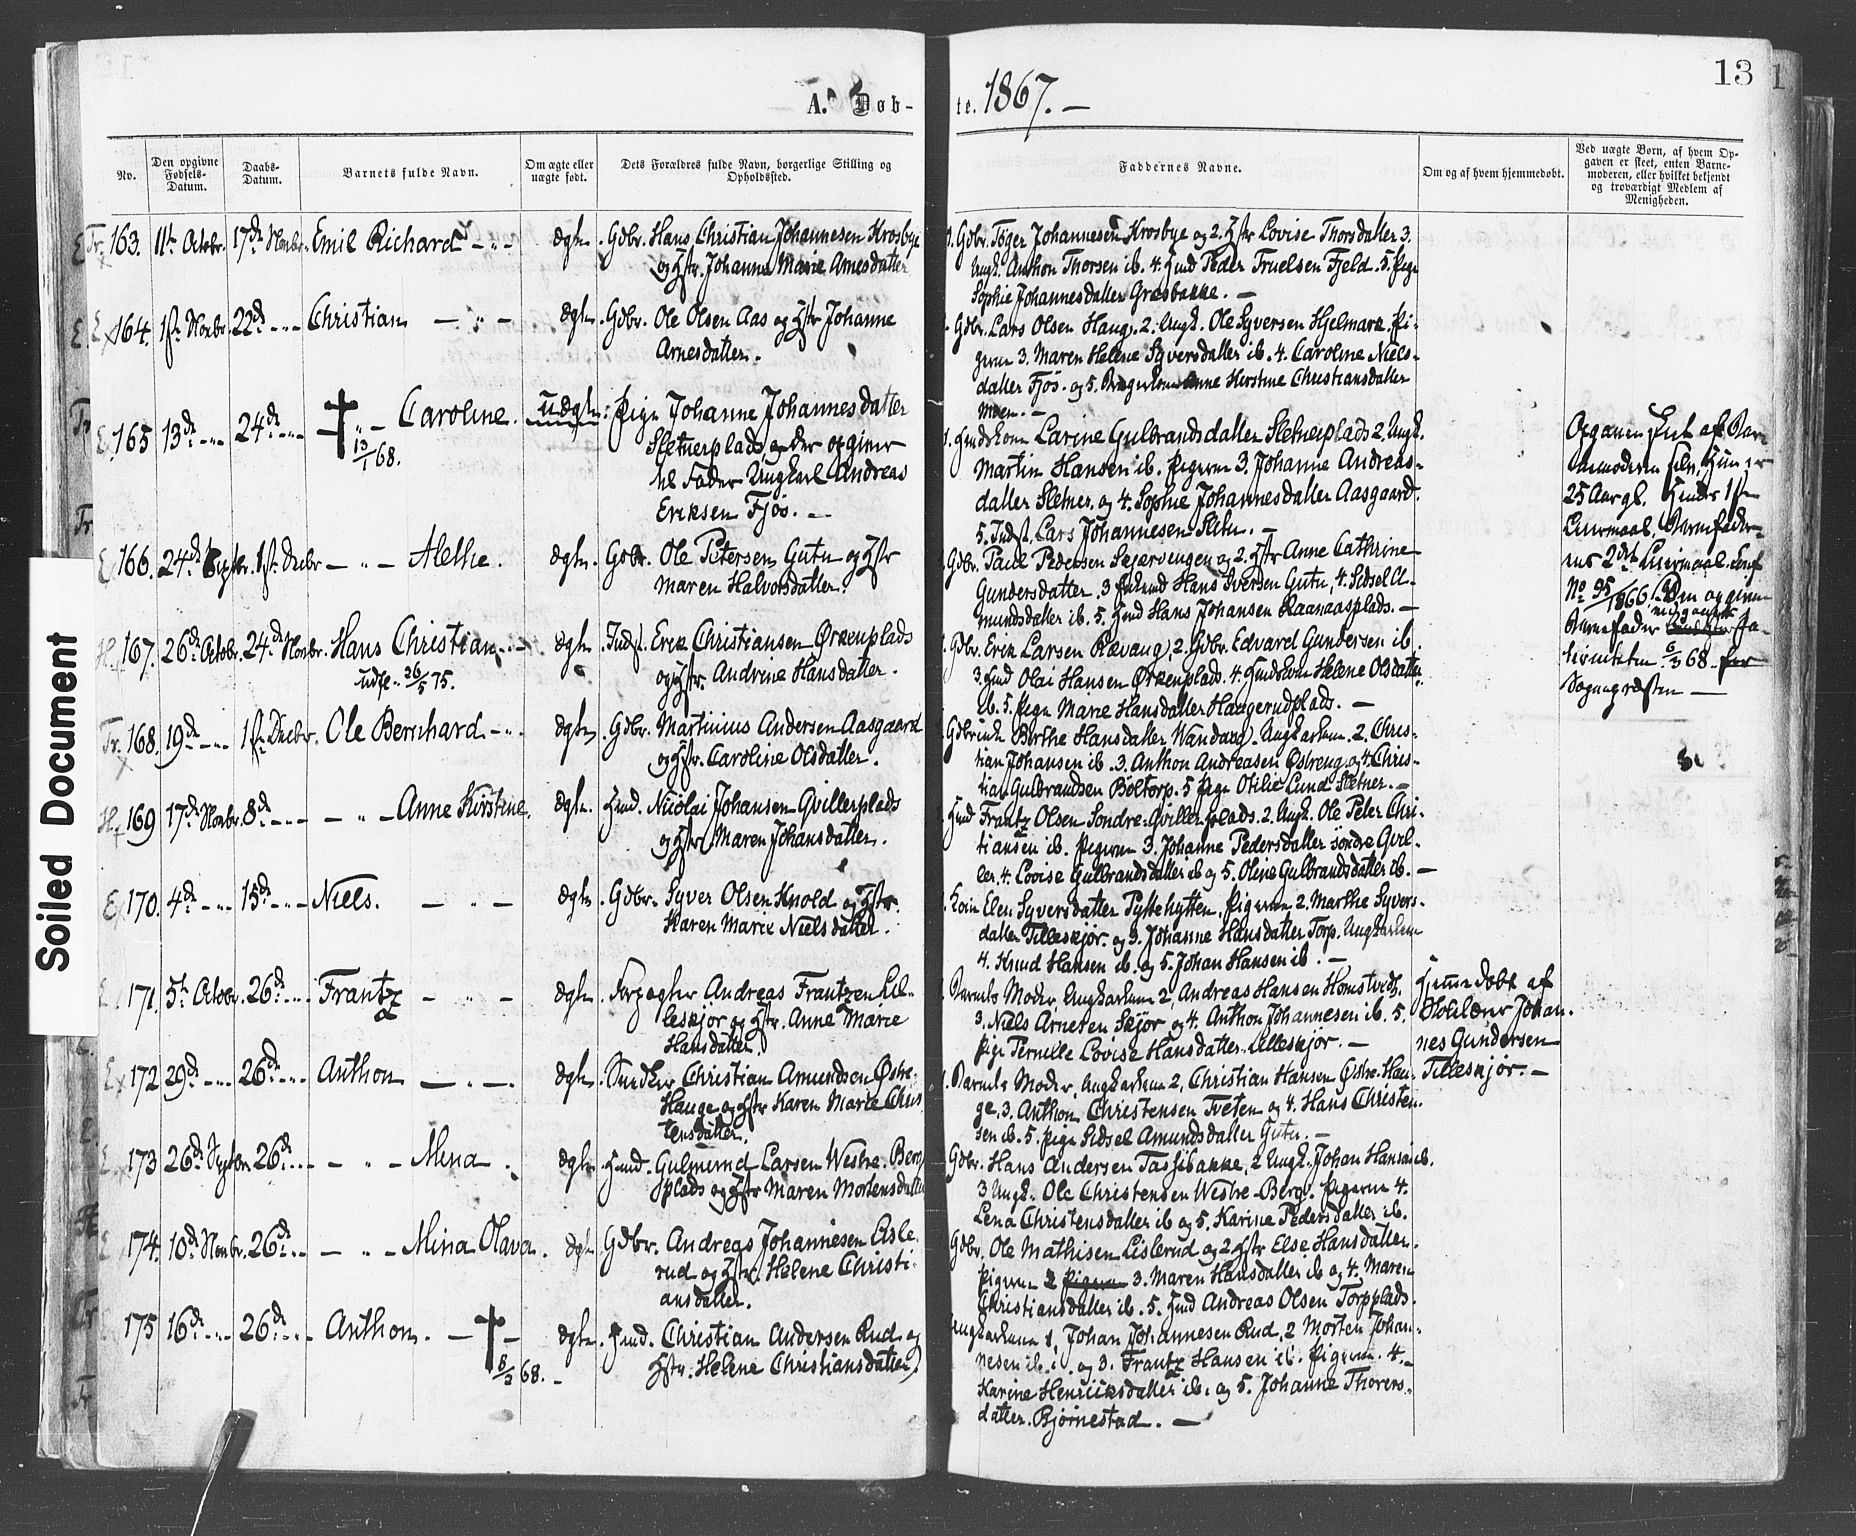 13
A. Døb-
te. 1867. —
No.
Den opgivne Fødsels-Datum.
Daabs-Datum.
Barnets fulde Navn.
Om ægte eller uægte født.
Dets Forældres fulde Navn, borgerlige Stilling og Opholdssted.
Faddernes Navne.
Om og af hvem hjemmedøbt.
Ved uægte Børn, af hvem Op-
gaven er skeet, enten Barne-
moderen, eller hvilket bekjendt
og troværdigt Medlem af
Menigheden.
Tr. 163. 11te Octobr. 17de Novbr. Emil Richard ægte. Gdbr. Hans Christian Johannesen Krosbye
og Hstr. Johanne Marie Arnesdatter
Gdbr. Tøger Johannesen Krosbye og 2. Hstr Lovise Thorsdatter 3.
Ungk. Anthon Thorsen ib. 4. Hmd Peder Truelsen Fjeld. 5. Pige
Sophie Johannesdatter Græsbakke. —
E 164. 1ste Novbr. 22de Christian ægte. Gdbr. Ole Olsen Aas og Hstr Johanne
Arnesdatter.
Gdbr. Lars Olsen Haug, 2. Ungk. Ole Syversen Hjelmark. Pi-
gerne 3. Maren Helene Syversdatter ib. 4. Caroline Niels-
datter Fjøs. og 5. Anne Kirstine Christiansdatter
Moen. —
E. 165 13de 24de Caroline. uægte: Pige Johanne Johannesdatter
13/1 68.
Sletnerplads, der opgiver
til Fader Ungkarl Andreas
Eriksen Fjøs. —
Larine Gulbrandsdatter Sletnerplads 2. Ungk.
Martin Hansen ib. Pigerne 3. Johanne Andreas-
datter Sletner. og 4. Sophie Johannesdatter Aasgaard.
5. Indst. Lars Johannesen Sletn. —
Opgaven skeet af Bar-
nemoderen selv. Hun er
25 Aar gl. Hendes 1ste
Leiermaal. Barnefade-
rens 2det Leiermaal.
No 95/1866. Den opgivne
Barnefader
6/3 68. for
Sognepræsten —
E 166. 24de Septbr. 1ste Decbr Mathe. ægte. Gdbr. Ole Petersen Gutu og Hstr
Maren Halvorsdatter.
Gdbr. Paul Pedersen Sejersengen og 2. Hstr Anne Cathrine
Gundersdatter. 3 Hans Iversen Gutu, 4. Sidsel A-
mundsdatter ib. 5. Hmd Hans Johansen Raanaasplads. —
H. 167. 26de Octobr. 24de Novbr. Hans Christian ægte Indst. Erik Christiansen Ørkenplads
udfl. 26/5 75.
og Hstr. Andrine Hansdatter.
Gdbr. Erik Larsen Rævaug, 2. Gdbr. Edvard Gundersen ib.
3. Hmd Olai Hansen Ørkenplads. 4. Helene Olsdatter
ib. 5. Pige Marie Hansdatter Haugerudplads. —
Tr. 168. 19de 1ste Decbr. Ole Bernhard ægte Gdbr. Martinius Andersen Aasgaard
og Hstr. Caroline Olsdatter.
Berthe Hansdatter Wandaug. Ungkarlene. 2. Chris-
tian Johansen ib. 3. Anthon Andreasen Østreng. og 4. Chris-
tian Gulbrandsen Böltorp. 5 Pige Otilie Lund Sletner. —
H. 169 17de Novbr. 8de Anne Kirstine. ægte. Hmd. Nicolai Johansen Gvillerplads
og Hstr Maren Johansdatter.
Hmd Frantz Olsen Søndre-Gvillerplads. 2. Ungk. Ole Peter Chri-
tiansen ib. Pigerne 3. Johanne Pedersdatter søndre Gvil-
ler. 4. Lovise Gulbrandsdatter ib og 5. Oline Gulbrandsdatter ib. —
E 170. 4de 15de Niels. ægte Gdbr. Syver Olsen Knold og Hstr.
Karen Marie Nielsdatter.
Elen Syversdatter Pyttehytten. Pigerne 2. Marthe Syvers-
datter Tilleskjør. og 3. Johanne Hansdatter Torp. Ungkarlene
4. Knud Hansen ib. og 5. Johan Hansen ib. —
171. 5te Octobr. 26de Frantz ægte Forpagter Andreas Frantzen Lil-
leskjør og Hstr. Anne Marie
Hansdatter.
Barnets Moder, Ungkarlene 2, Andreas Hansen Homstvedt,
3. Niels Arnesen Skjør og 4. Anthon Johannesen ib. 5.
Pige Pernille Lovise Hansdatter Lilleskjør. —
Hjemmedøbt af
Skolelærer Johan-
nes Gundersen
Tilleskjør. —
E 172 29de 26de Anthon ægte. Snedker Christian Amundsen Østre-
Hauge og Hstr Karen Marie Chris-
tensdatter.
Barnets Moder, Ungkarlene 2, Christian Hansen Østre-Hau-
ge, 3. Anthon Christensen Tveten og 4. Hans Christen-
sen ib. 5. Pige Sidsel Amundsdatter Gutu. —
E. 173 26de Septbr. 26de Mina ægte Hmd. Gulmund Larsen Westre-Berg
plads og Hstr Maren Mortensdatter
Gdbr. Hans Andersen Tassebakke, 2 Ungk. Johan Hansen ib.
3 Ungk. Ole Christensen Westre-Berg. Pigerne 4.
Lena Christensdatter ib og 5. Karine Pedersdatter ib.
174. 10de Novbr. 26de Mina Olava. ægte Gdbr. Andreas Johannesen Lisle-
rud og Hstr. Helene Christi-
ansdatter.
Gdbr. Ole Mathisen Lislerud og 2 Hstr Else Hansdatter.
Pigerne 3. Maren Hansdatter ib og 4. Maren
Christiansdatter ib. 5. Hmd Andreas Olsen Torpplads.
175 16de 26de Anthon. ægte. Hmd. Christian Andersen Rud og
8/2 68.
Hstr. Helene Christiansdatter.
Ungkarlene 1, Johan Johannesen Rud, 2 Morten Johan-
nesen ib. og 3. Frantz Hansen ib. Pigerne. 4.
Karine Henriksdatter ib. og 5. Johanne Thorers-
datter. Bjørnestad. —
Soiled Document